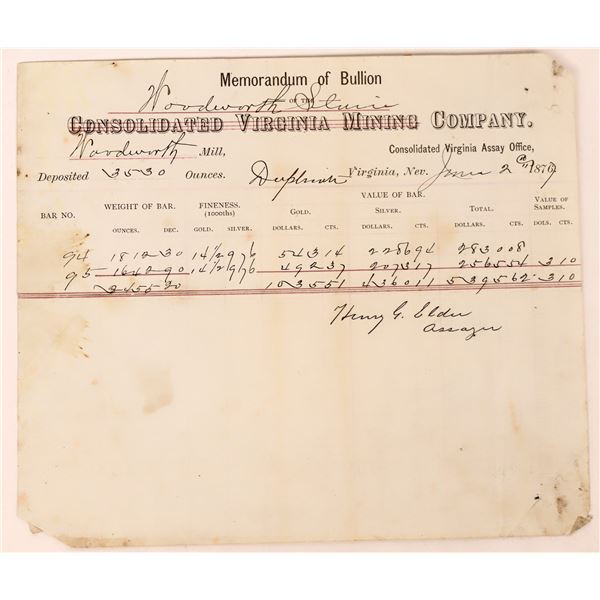 Memorandum of Bullion
Woodworth Sluice
OF THE
CONSOLIDATED VIRGINIA MINING COMPANY.
Woodworth Mill,
Consolidated Virginia Assay Office,
Deposited 3530 Ounces. Duplicate Virginia, Nev. June 2 187
BAR NO. WEIGHT OF BAR. FINENESS. (1000ths) VALUE OF BAR. VALUE OF SAMPLES.
GOLD. SILVER. TOTAL.
OUNCES. DEC. GOLD. SILVER. DOLLARS. CTS. DOLLARS. CTS. DOLLARS. CTS. DOLLARS. CTS.
94 1812 30 14½ 976 543 14 2286 94 2830 08
95 1642 90 14½ 976 492 37 2073 17 2565 54 3 10
3455 20 1035 51 4360 11 5395 62 3 10
Henry G. Elder
Assayer